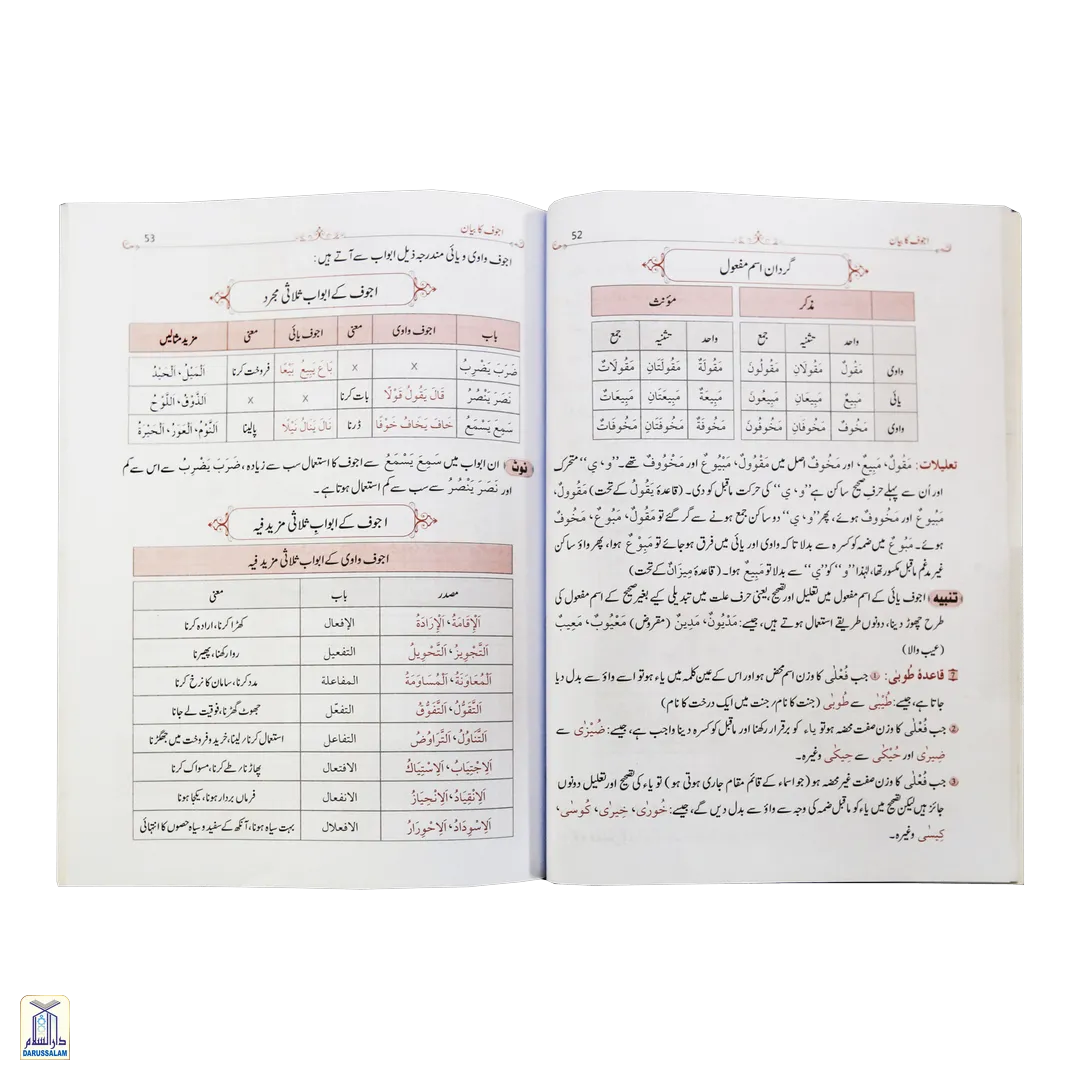 اجوف کا بیان
52
گردان اسم مفعول
مذکر مؤنث
واحد تثنیہ جمع واحد تثنیہ جمع
واوی مَقُولٌ مَقُولَانِ مَقُولُونَ مَقُولَةٌ مَقُولَتَانِ مَقُولَاتٌ
یائی مَبِيعٌ مَبِيعَانِ مَبِيعُونَ مَبِيعَةٌ مَبِيعَتَانِ مَبِيعَاتٌ
واوی مَخُوفٌ مَخُوفَانِ مَخُوفُونَ مَخُوفَةٌ مَخُوفَتَانِ مَخُوفَاتٌ
تعلیلات: مَقُولٌ، مَبِيعٌ، اور مَخُوفٌ اصل میں مَقْوُولٌ، مَبْيُوعٌ اور مَخْوُوفٌ تھے۔ ”و، ي“ متحرک
اور اُن سے پہلے حرفِ صحیح ساکن ہے ”و، ي“ کی حرکت ماقبل کو دی۔ (قاعدۂ يَقُولُ کے تحت) مَقُوولٌ،
مَبُيوعٌ اور مَخُووفٌ ہوئے، پھر ”و، ي“ دو ساکن جمع ہونے سے گر گئے تو مَقُولٌ، مَبُوعٌ، مَخُوفٌ
ہوئے۔ مَبُوعٌ میں ضمہ کو کسرہ سے بدلا تاکہ واوی اور یائی میں فرق ہو جائے تو مَبِوْعٌ ہوا، پھر واؤ ساکن
غیر مدغم ماقبل مکسور تھا، لہٰذا ”و“ کو ”ي“ سے بدلا تو مَبِيعٌ ہوا۔ (قاعدۂ مِيزَانٌ کے تحت)
تنبیہ اجوف یائی کے اسم مفعول میں تعلیل اور تصحیح، یعنی حرف علت میں تبدیلی کیے بغیر صحیح کے اسم مفعول کی
طرح چھوڑ دینا، دونوں طریقے استعمال ہوتے ہیں، جیسے: مَدْيُونٌ، مَدِينٌ (مقروض) مَعْيُوبٌ، مَعِيبٌ
(عیب والا)
قاعدۂ طُوبٰی: ① جب فُعْلٰی کا وزن اسم محض ہو اور اس کے عین کلمہ میں یاء ہو تو اسے واؤ سے بدل دیا
جاتا ہے، جیسے: طُيْبٰی سے طُوبٰی (جنت کا نام / جنت میں ایک درخت کا نام)
② جب فُعْلٰی کا وزن صفت محضہ ہو تو یاء کو برقرار رکھنا اور ماقبل کو کسرہ دینا واجب ہے، جیسے: ضُيْزٰی سے
ضِيزٰی اور حُيْكٰی سے حِيكٰی وغیرہ۔
③ جب فُعْلٰی کا وزن صفت غیر محضہ ہو (جو اسماء کے قائم مقام جاری ہوتی ہو) تو یاء کی تصحیح اور تعلیل دونوں
جائز ہیں لیکن تصحیح میں یاء کو ماقبل ضمہ کی وجہ سے واؤ سے بدل دیں گے، جیسے: خُورٰی، خِيرٰی، كُوسٰی،
كِيسٰی وغیرہ۔
اجوف کا بیان
53
اجوف واوی و یائی مندرجہ ذیل ابواب سے آتے ہیں:
اجوف کے ابواب ثلاثی مجرد
باب اجوف واوی معنی اجوف یائی معنی مزید مثالیں
ضَرَبَ يَضْرِبُ x x بَاعَ يَبِيعُ بَيْعًا فروخت کرنا اَلْمَيْلُ، اَلْحَيْدُ
نَصَرَ يَنْصُرُ قَالَ يَقُولُ قَوْلًا بات کرنا x x اَلذَّوْقُ، اَللَّوْحُ
سَمِعَ يَسْمَعُ خَافَ يَخَافُ خَوْفًا ڈرنا نَالَ يَنَالُ نَيْلًا پالینا اَلنَّوْمُ، اَلْعَوَرُ، اَلْحَيْرَةُ
نوٹ ان ابواب میں سَمِعَ يَسْمَعُ سے اجوف کا استعمال سب سے زیادہ، ضَرَبَ يَضْرِبُ سے اس سے کم
اور نَصَرَ يَنْصُرُ سے سب سے کم استعمال ہوتا ہے۔
اجوف کے ابوابِ ثلاثی مزید فیہ
اجوف واوی کے ابواب ثلاثی مزید فیہ
مصدر باب معنی
اَلْإِقَامَةُ، اَلْإِرَادَةُ الإفعال کھڑا کرنا، ارادہ کرنا
اَلتَّجْوِيزُ، اَلتَّحْوِيلُ التفعيل روا رکھنا، پھیرنا
اَلْمُعَاوَنَةُ، اَلْمُسَاوَمَةُ المفاعلة مدد کرنا، سامان کا نرخ کرنا
اَلتَّقَوُّلُ، اَلتَّفَوُّقُ التفعّل جھوٹ گھڑنا، فوقیت لے جانا
اَلتَّنَاوُلُ، اَلتَّرَاوُضُ التفاعل استعمال کرنا / لینا، خرید و فروخت میں جھگڑنا
اَلِاجْتِيَابُ، اَلِاسْتِيَاكُ الافتعال پھاڑنا / طے کرنا، مسواک کرنا
اَلِانْقِيَادُ، اَلِانْحِيَازُ الانفعال فرماں بردار ہونا، یکجا ہونا
اَلِاسْوِدَادُ، اَلِاحْوِرَارُ الافعلال بہت سیاہ ہونا، آنکھ کے سفید و سیاہ حصوں کا انتہائی
دارالسلام
DARUSSALAM